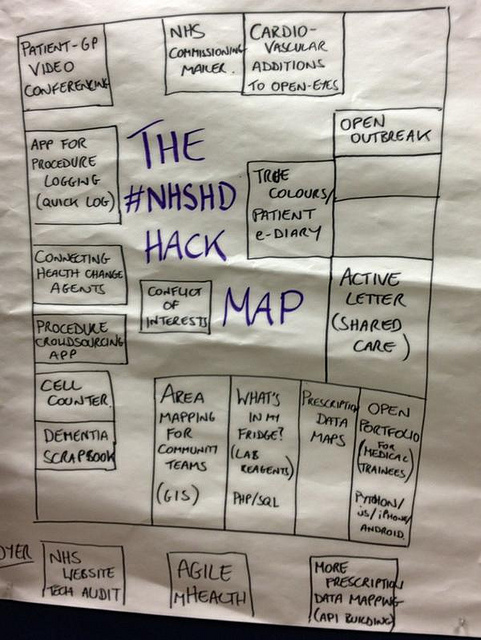 PATIENT-GP
VIDEO
CONFERENCING
NHS
COMMISSIONING
MAILER.
CARDIO-
VASCULAR
ADDITIONS
TO OPEN-EYES
OPEN
OUTBREAK
APP FOR
PROCEDURE
LOGGING
(QUICK LOG)
THE
#NHSHD
HACK
MAP
TRUE
COLOURS/
PATIENT
e-DIARY
CONNECTING
HEALTH CHANGE
AGENTS
CONFLICT
OF
INTERESTS
ACTIVE
LETTER
(SHARED
CARE)
PROCEDURE
CROWDSOURCING
APP
CELL
COUNTER
DEMENTIA
SCRAPBOOK
AREA
MAPPING
FOR
COMMUNITY
TEAMS
(GIS)
WHAT'S
IN MY
FRIDGE?
(LAB
REAGENTS)
PHP/SQL
PRESCRIPTION
DATA
MAPS
OPEN
PORTFOLIO
(FOR
MEDICAL
TRAINEES)
PYTHON/
JS/iPHONE/
ANDROID
NHS
WEBSITE
TECH AUDIT
AGILE
mHEALTH
MORE
PRESCRIPTION
DATA MAPPING
(API BUILDING)